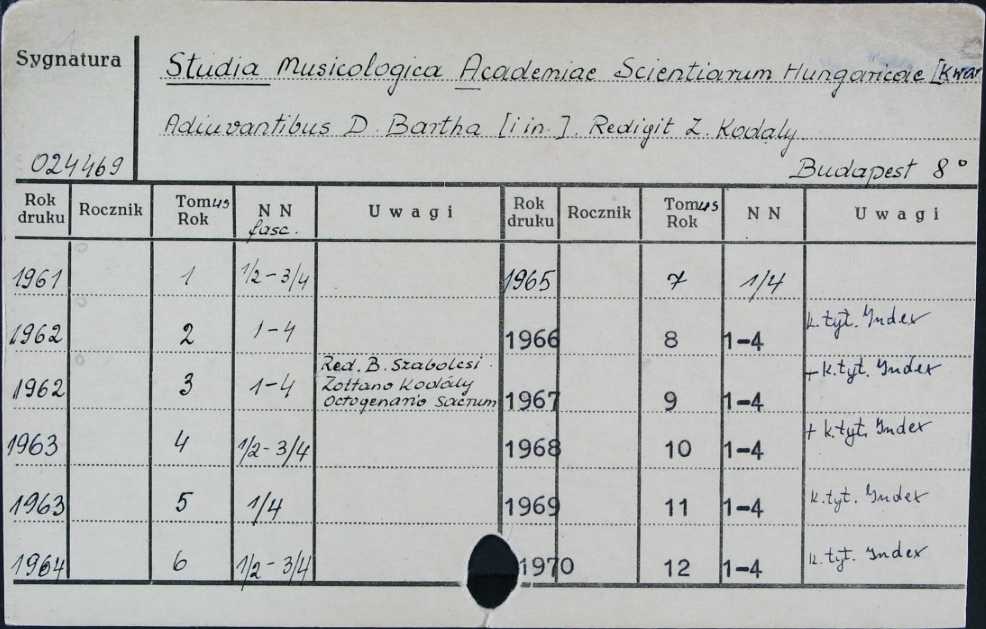 Sygnatura
Studia Musicologica Academiae Scientiarum Hungaricae [Kwar
Adiuvantibus D. Bartha [i in.]. Redigit Z. Kodály
024469
Budapest 8°
Rok druku Rocznik Tomus Rok NN fasc. Uwagi Rok druku Rocznik Tomus Rok NN Uwagi
1961 1 1/2-3/4 1965 7 1/4
1962 2 1-4 1966 8 1-4 k. tyt. Index
1962 3 1-4 Red. B. Szabolcsi Zoltano Kodály Octogenario Sacrum 1967 9 1-4 + k. tyt. Index
1963 4 1/2-3/4 1968 10 1-4 + k. tyt. Index
1963 5 1/4 1969 11 1-4 k. tyt. Index
1964 6 1/2-3/4 1970 12 1-4 k. tyt. Index